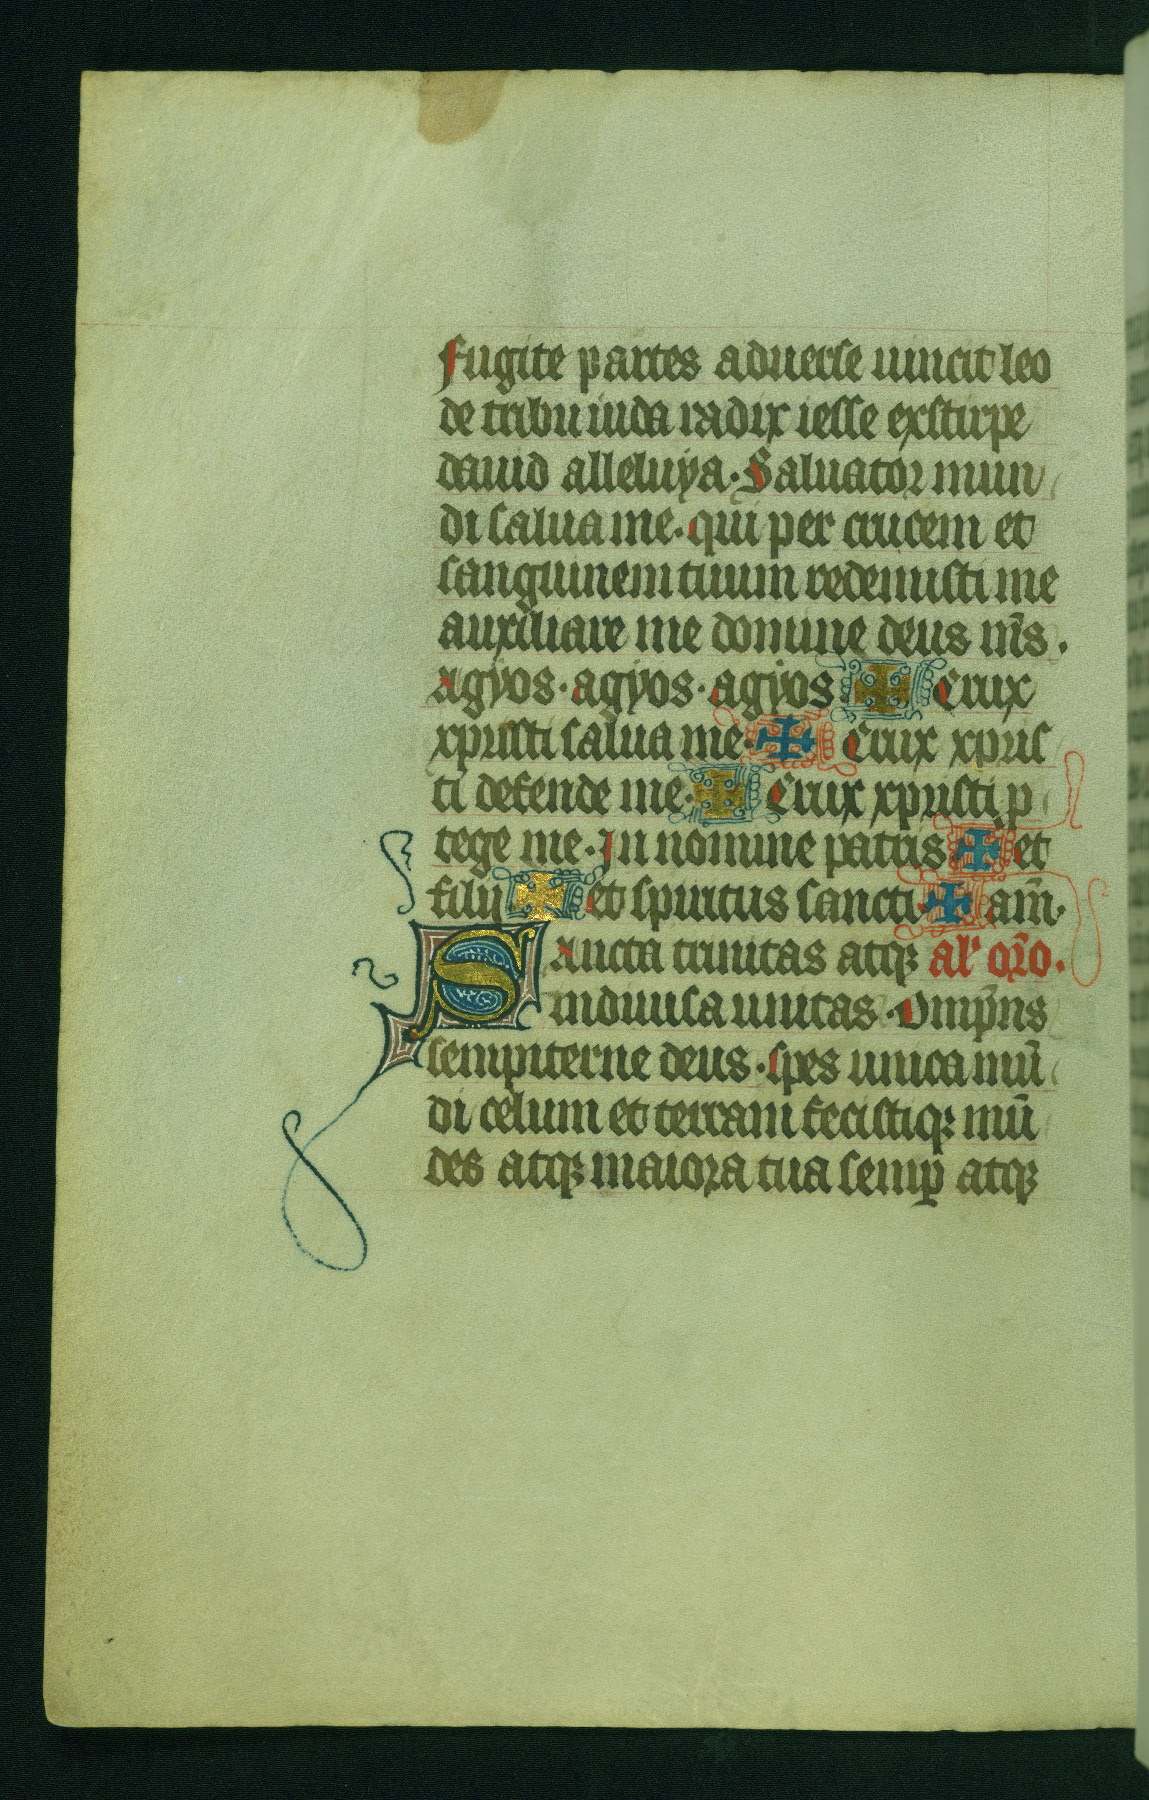 Fugite partes aduerse uincit leo
de tribu iuda radix iesse exstirpe
dauid alleluya · Saluator mun
di salua me · qui per crucem et
sanguinem tuum redemisti me
auxiliare me domine deus ms̄ .
Agyos · agyos · agyos ✠ Crux
xpristi salua me · ✠ Crux xpris
ti defende me · ✠ Crux xpristi p
tege me · In nomine patris ✠ et
filii ✠ et spiritus sancti · ✠ am̄ ·
Sancta trinitas atqꝫ al' or̄o .
indiuisa unitas · Omp̄ns
sempiterne deus · spes unica mū
di celum et terram fecistiqꝫ mū
des atqꝫ maiora tua semꝑ atqꝫ